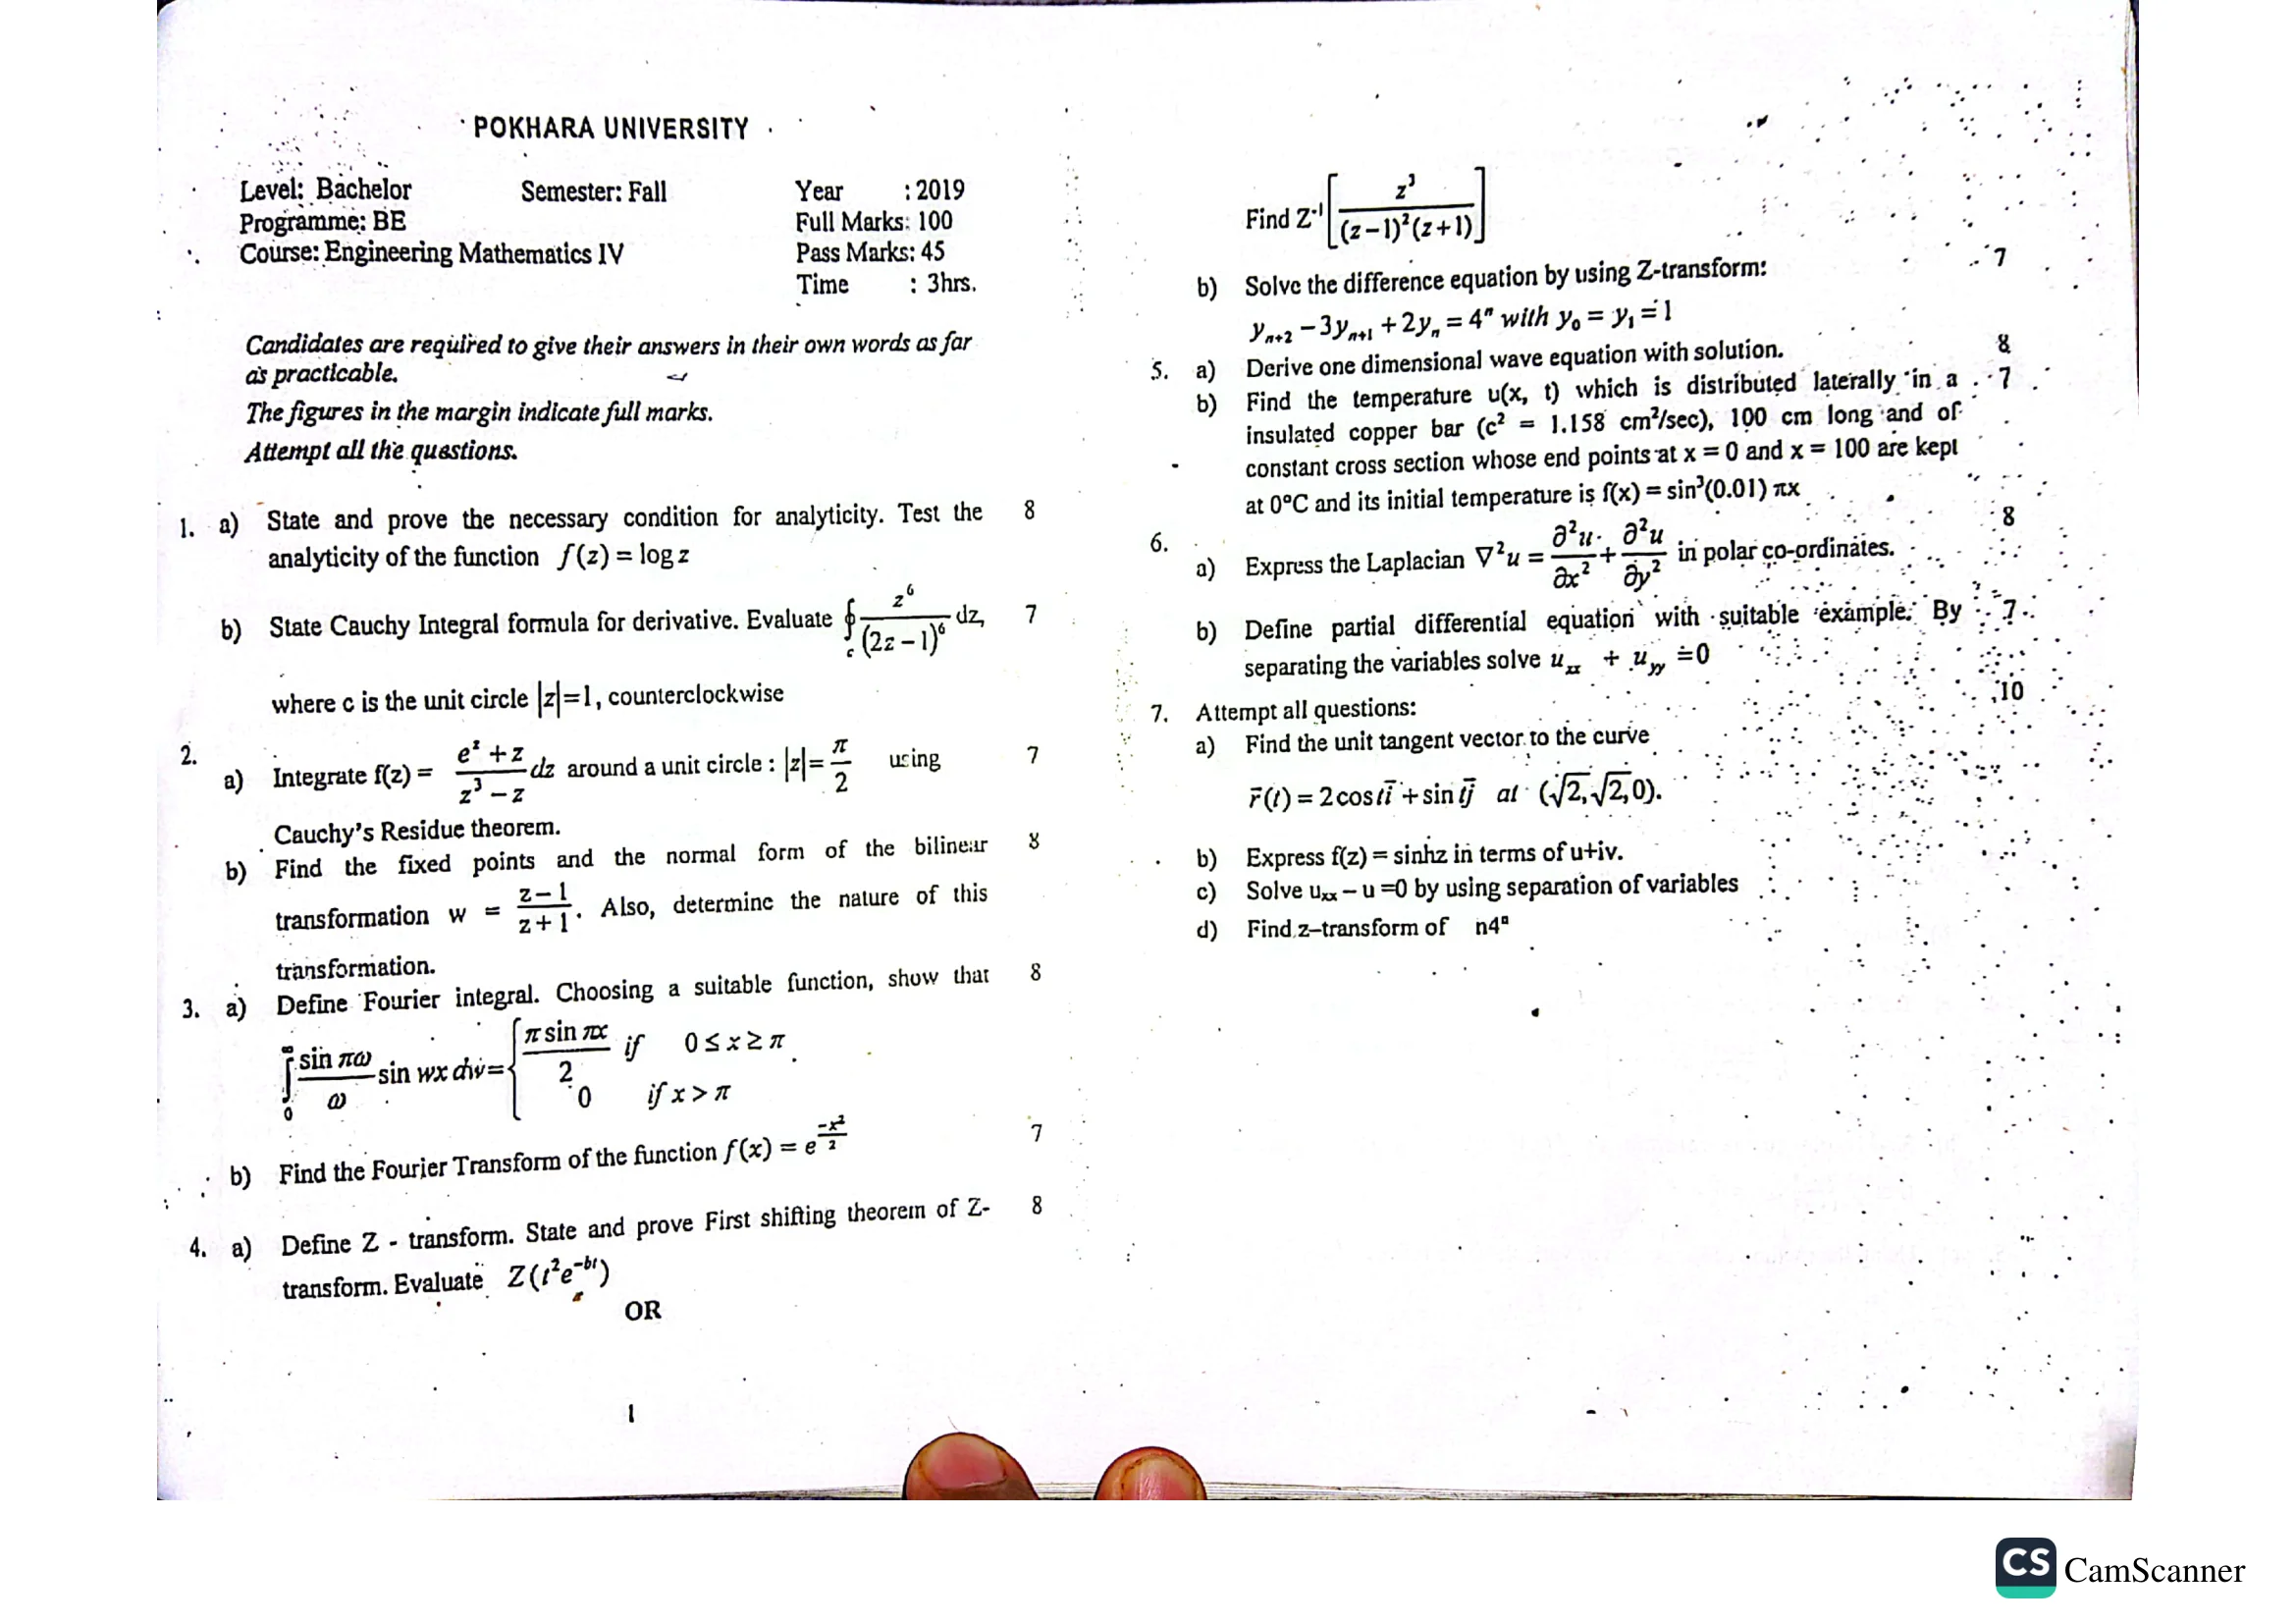 POKHARA UNIVERSITY
Level: Bachelor Semester: Fall Year : 2019
Programme: BE Full Marks: 100
Course: Engineering Mathematics IV Pass Marks: 45
Time : 3hrs.
Candidates are required to give their answers in their own words as far
as practicable.
The figures in the margin indicate full marks.
Attempt all the questions.
1. a) State and prove the necessary condition for analyticity. Test the 8
analyticity of the function f(z) = log z
b) State Cauchy Integral formula for derivative. Evaluate ∮_c z^6/(2z − 1)^6 dz, 7
where c is the unit circle |z|=1, counterclockwise
2. a) Integrate f(z) = (e^z + z)/(z^3 − z) dz around a unit circle : |z|= π/2 using 7
Cauchy's Residue theorem.
b) Find the fixed points and the normal form of the bilinear 8
transformation w = (z−1)/(z+1). Also, determine the nature of this
transformation.
3. a) Define Fourier integral. Choosing a suitable function, show that 8
∫_0^∞ (sin πω)/ω sin wx dw= { (π sin πx)/2 if 0 ≤ x ≥ π
0 if x > π
b) Find the Fourier Transform of the function f(x) = e^(−x²/2) 7
4. a) Define Z - transform. State and prove First shifting theorem of Z- 8
transform. Evaluate Z(t²e^(−bt))
OR
1
Find Z^-1[z³/((z−1)²(z+1))]
7
b) Solve the difference equation by using Z-transform:
y_{n+2} − 3y_{n+1} + 2y_n = 4^n with y_0 = y_1 = 1
5. a) Derive one dimensional wave equation with solution. 8
b) Find the temperature u(x, t) which is distributed laterally in a 7
insulated copper bar (c² = 1.158 cm²/sec), 100 cm long and of
constant cross section whose end points at x = 0 and x = 100 are kept
at 0°C and its initial temperature is f(x) = sin³(0.01) πx
6. 8
a) Express the Laplacian ∇²u = ∂²u/∂x² + ∂²u/∂y² in polar co-ordinates.
b) Define partial differential equation with suitable example. By 7
separating the variables solve u_xx + u_yy =0
7. Attempt all questions: 10
a) Find the unit tangent vector to the curve
r⃗(t) = 2cos t i⃗ + sin t j⃗ at (√2,√2,0).
b) Express f(z) = sinhz in terms of u+iv.
c) Solve u_xx – u =0 by using separation of variables
d) Find z–transform of n4^n
CS CamScanner